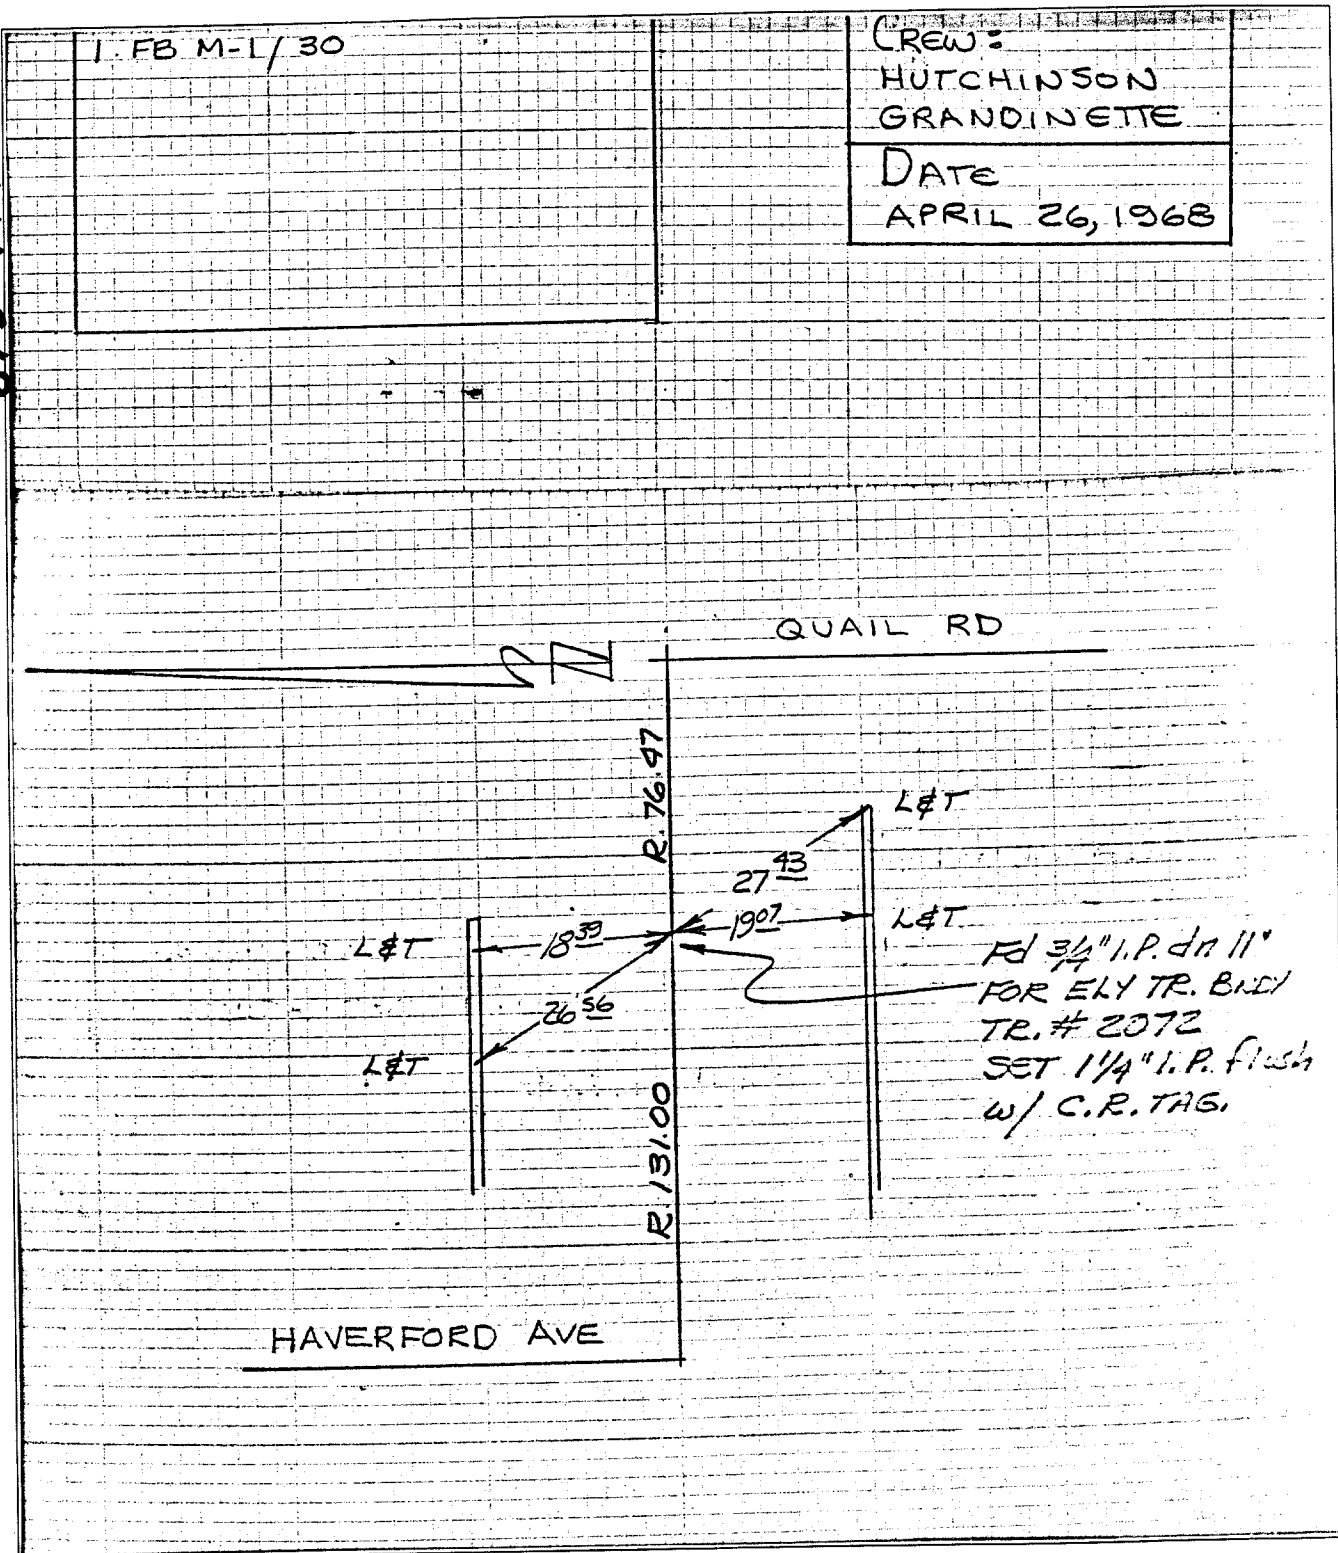 1. FB M-1/30
CREW:
HUTCHINSON
GRANDINETTE
DATE
APRIL 26, 1968
QUAIL RD
N
R. 76.47
L&T
27 43
19 07
L&T
L&T
18 39
26 56
L&T
Fd 3/4" I.P. dn 11"
FOR ELY TR. BNDY
TR. # 2072
SET 1 1/4" I.P. flush
w/ C.R. TAG.
R. 131.00
HAVERFORD AVE